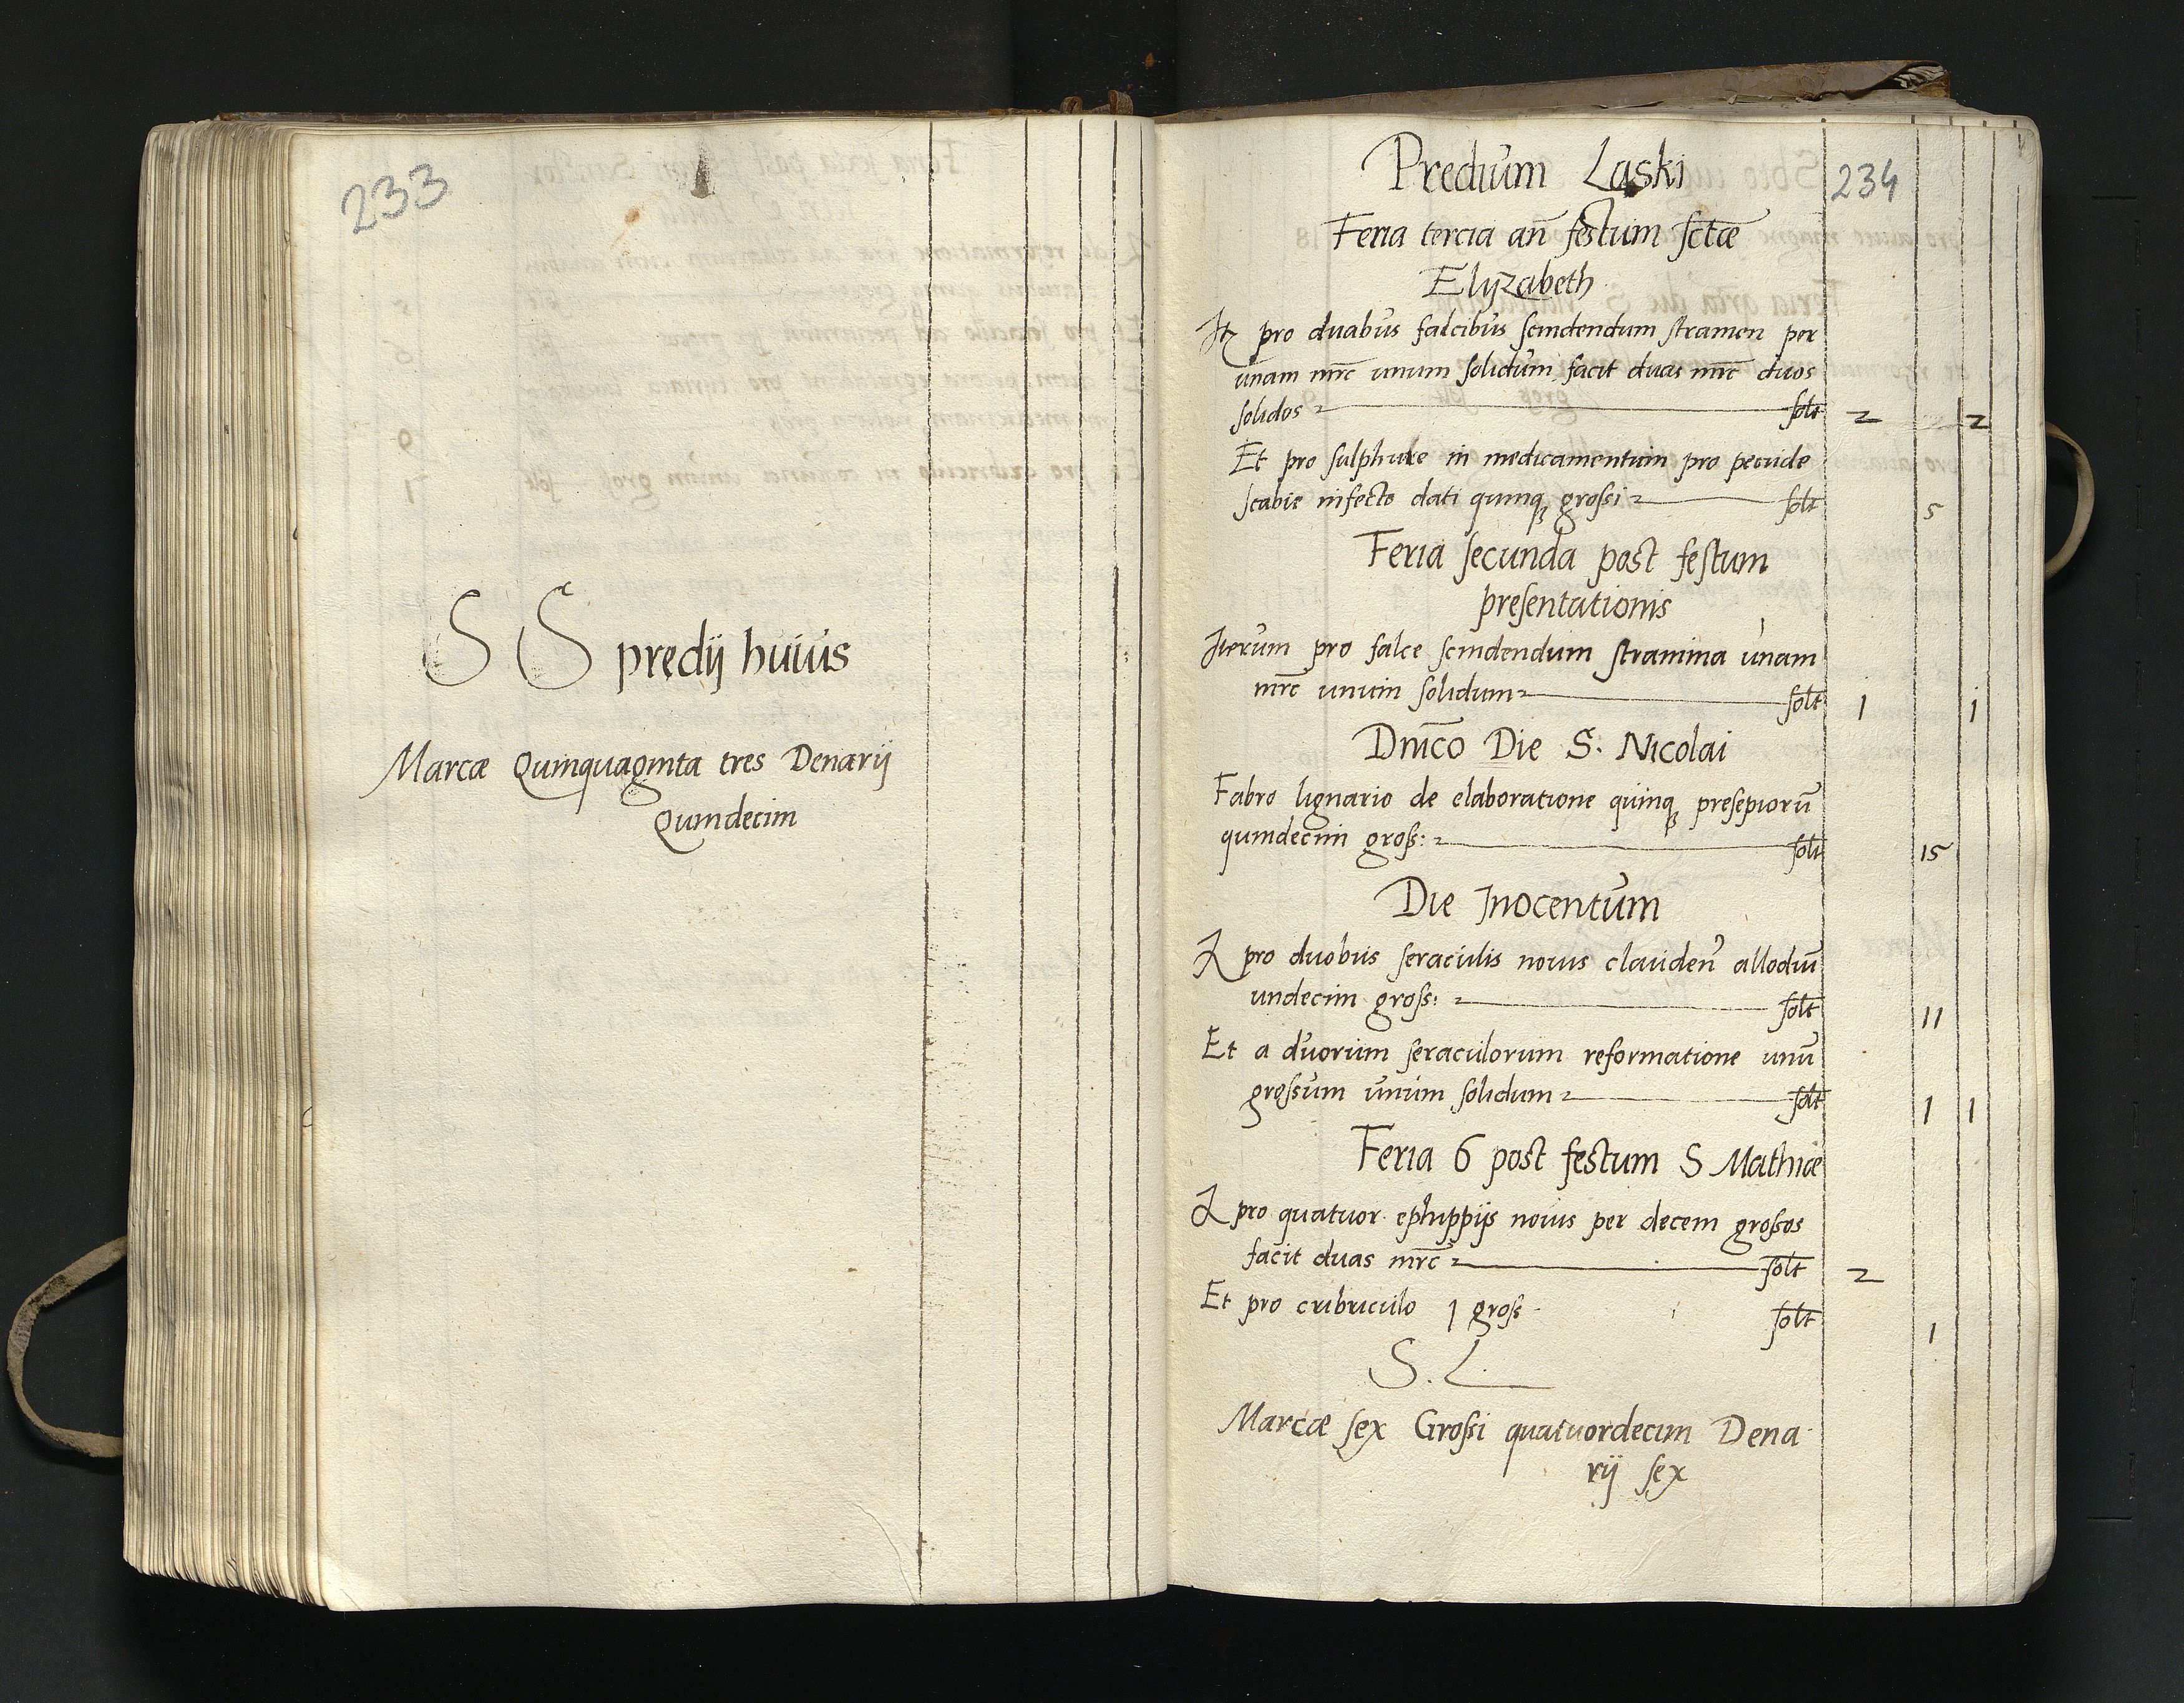 233
S S predij huius
Marcæ Quinquaginta tres Denarij
Quindecim
Predium Laski
234
Feria tercia an̄ festum sctæ
Elyzabeth
It pro duabus falcibus scindendum stramen per
unam mrc unum solidum facit duas mrc duos
solidos solt 2 2
Et pro sulphure in medicamentum pro pecude
scabie infecto dati quinq grossi solt 5
Feria secunda post festum
presentationis
Iterum pro falce scindendum stramina unam
mrc unum solidum solt 1 1
Dnico Die S. Nicolai
Fabro lignario de elaboratione quinq presepiorū
quindecim gross: solt 15
Die Inocentum
It pro duobus seraculis novis clauden allodiū
undecim gross: solt 11
Et a duorum seraculorum reformatione unū
grossum unum solidum solt 1 1
Feria 6 post festum S Mathiæ
It pro quatuor ephippijs novis per decem grossos
facit duas mrc solt 2
Et pro cribriculo 1 gross solt 1
S. L.
Marcæ sex Grossi quatuordecim Dena
rij sex